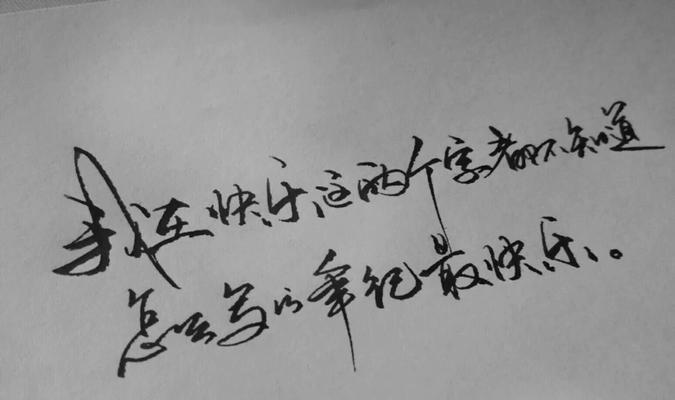 我连快乐这两个字都不知道
怎么写的年纪最快乐。